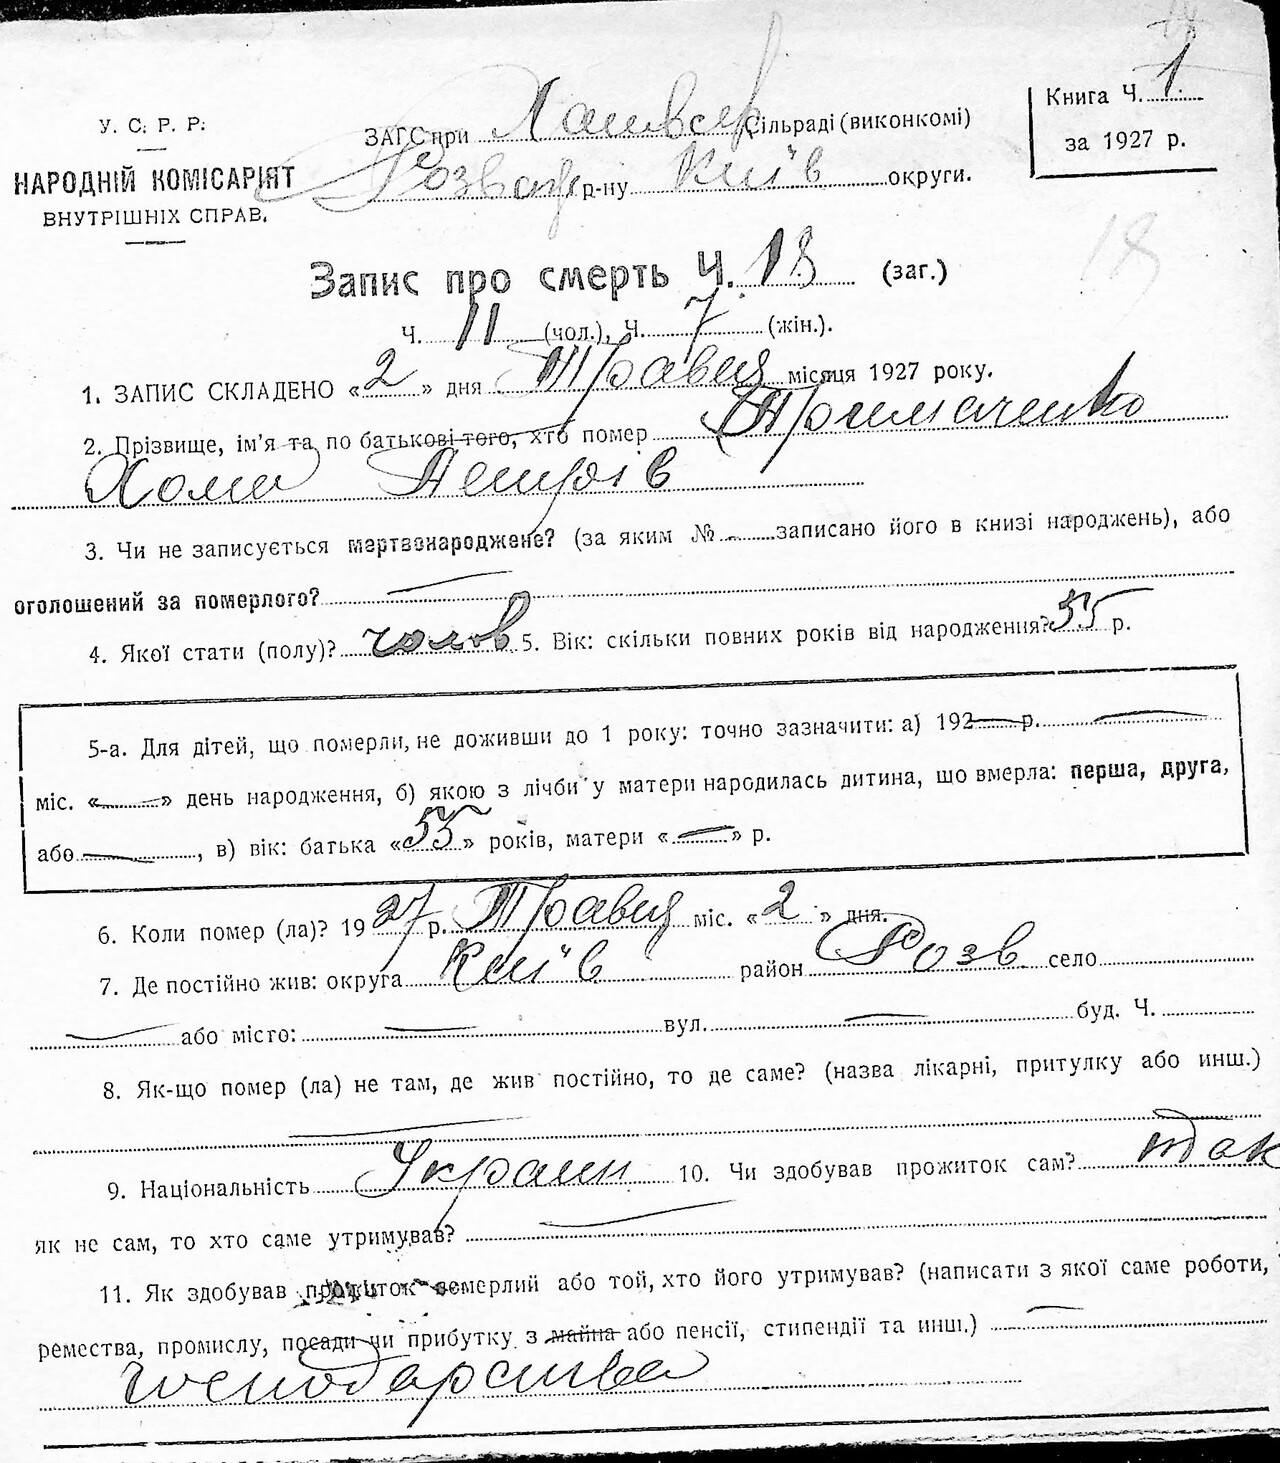 18
У. С. Р. Р.
НАРОДНІЙ КОМІСАРІЯТ
ВНУТРІШНІХ СПРАВ.
ЗАГС при Сільраді (виконкомі)
Розваж р-ну Київ округи.
Книга Ч. 1
за 1927 р.
18
Запис про смерть Ч. 18 (заг.)
Ч. 11 (чол.), Ч. 7 (жін.).
1. ЗАПИС СКЛАДЕНО «2» дня Травця місяця 1927 року.
2. Прізвище, ім'я та по батькові того, хто помер Примаченко
Хома Петрів
3. Чи не записується мертвонароджене? (за яким № записано його в книзі народжень), або
оголошений за померлого? —
4. Якої стати (полу)? чолов 5. Вік: скільки повних років від народження? 55 р.
5-а. Для дітей, що померли, не доживши до 1 року: точно зазначити: а) 192— р. —
міс. «—» день народження, б) якою з лічби у матери народилась дитина, що вмерла: перша, друга,
або —, в) вік: батька «55» років, матери «—» р.
6. Коли помер (ла)? 1927 р. Травця міс. «2» дня.
7. Де постійно жив: округа Київ район Розв село
— або місто: — вул. — буд. Ч.
8. Як-що помер (ла) не там, де жив постійно, то де саме? (назва лікарні, притулку або инш.)
—
9. Національність Украин 10. Чи здобував прожиток сам? так
як не сам, то хто саме утримував? —
11. Як здобував прожиток семерлий або той, хто його утримував? (написати з якої саме роботи,
ремества, промислу, посади чи прибутку з майна або пенсії, стипендії та инш.) —
господарства